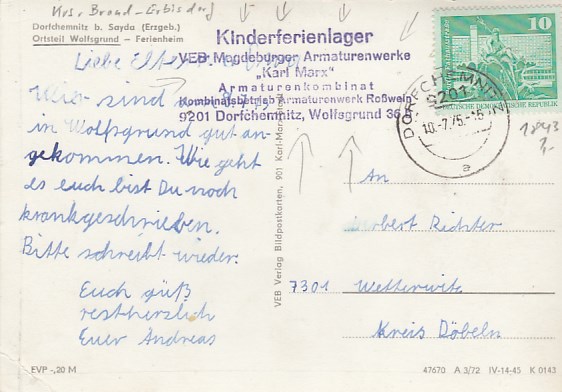 Krs. Brand-Erbisdorf
Dorfchemnitz b. Sayda (Erzgeb.)
Ortsteil Wolfsgrund – Ferienheim
Kinderferienlager
VEB Magdeburger Armaturenwerke
„Karl Marx“
Armaturenkombinat
Kombinatsbetrieb Armaturenwerk Roßwein
9201 Dorfchemnitz, Wolfsgrund 36
10
DEUTSCHE DEMOKRATISCHE REPUBLIK
DORFCHEMNITZ
9201
10.-7.75.-15
a
1843
Liebe Eltern
Wir sind
in Wolfsgrund gut an-
gekommen. Wie geht
es euch bist Du noch
krankgeschrieben.
Bitte schreibt wieder.
Euch grüß
rest herzlich
Euer Andreas
VEB Verlag Bildpostkarten, 901 Karl-Marx-
An
Richter
7301 Wetterwitz
Kreis Döbeln
EVP -,20 M
47670 A 3/72 IV-14-45 K 0143